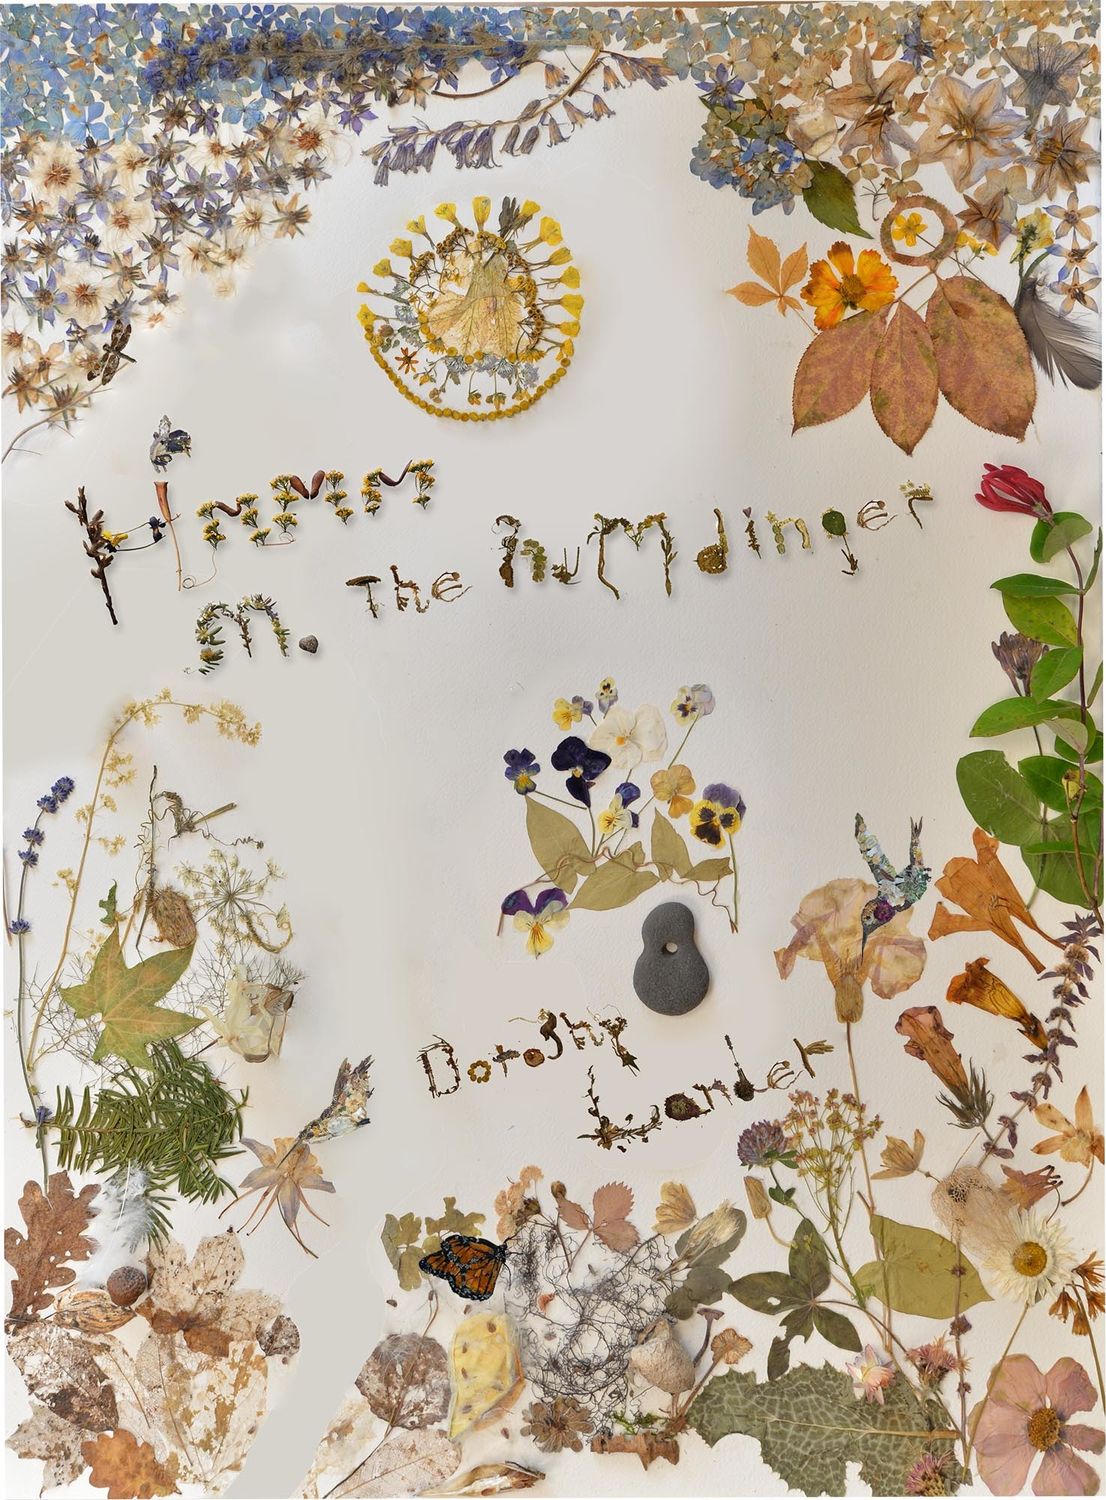 Hmmm
m. The humdinger
Dorothy
Lander